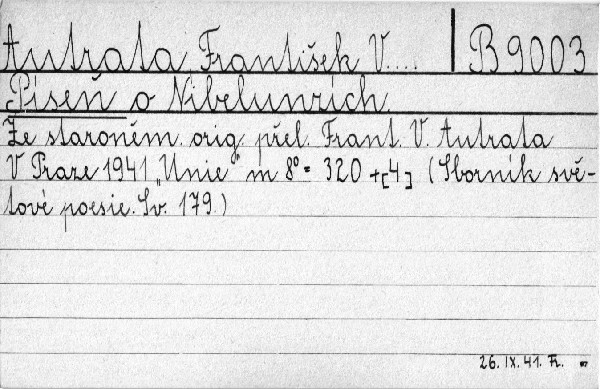 Autrata František V.... B 9003
Píseň o Nibelunzích.
Ze staroněm. orig. přel. Frant. V. Autrata
V Praze 1941 „Unie" m 8° = 320 + [4] (Sborník svě-
tové poesie. Sv. 179.)
26. IX. 41.